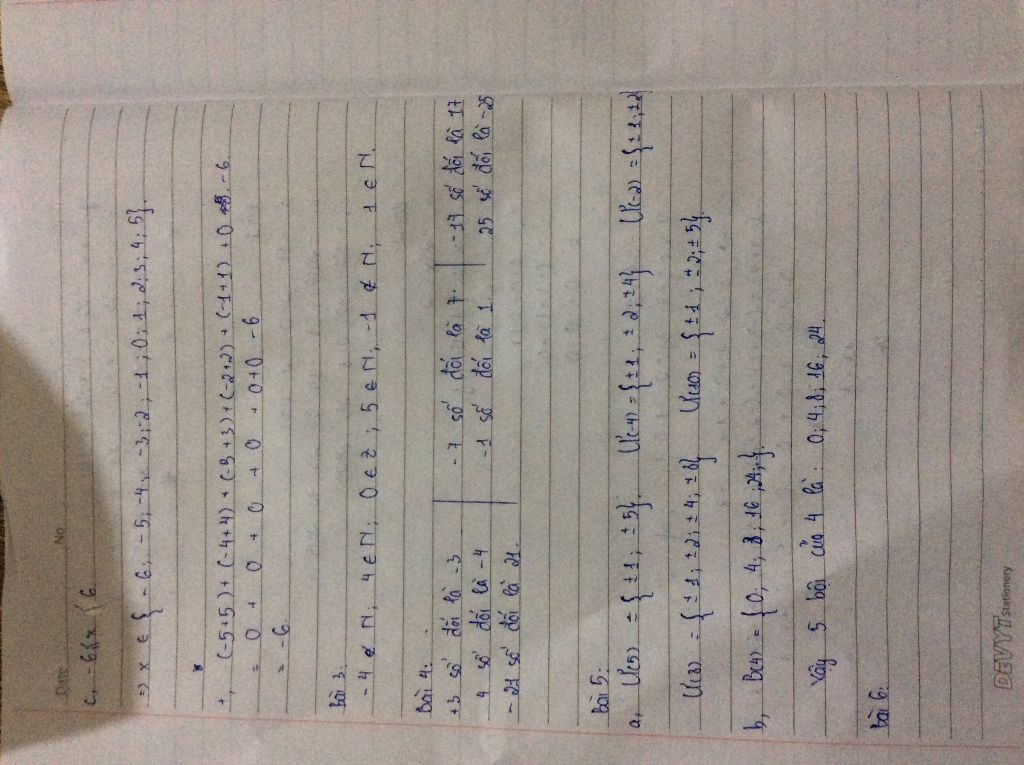 Date No
c, -6 ≤ x < 6
=> x ∈ { -6; -5; -4; -3; -2; -1; 0; 1; 2; 3; 4; 5}.
+, (-5+5) + (-4+4) + (-3+3) + (-2+2) + (-1+1) + 0 -6
= 0 + 0 + 0 + 0 + 0+0 -6
= -6.
Bài 3:
-4 ∉ N, 4 ∈ N; 0 ∈ Z; 5 ∈ N, -1 ∉ N, 1 ∈ N.
Bài 4:
+3 số đối là -3 | -7 số đối là 7. | -17 số đối là 17
4 số đối là -4 | -1 số đối là 1 | 25 số đối là -25
-21 số đối là 21.
Bài 5:
a, Ư(5) = { ±1; ±5}. Ư(-4) = { ±1; ±2; ±4} Ư(-2) = { ±1; ±2
Ư(8) = { ±1; ±2; ±4; ±8} Ư(10) = { ±1; ±2; ±5}.
b, B(4) = {0; 4; 8; 16; 24;..}.
Vậy 5 bội của 4 là: 0; 4; 8; 16; 24.
Bài 6:
DEVYT Stationery